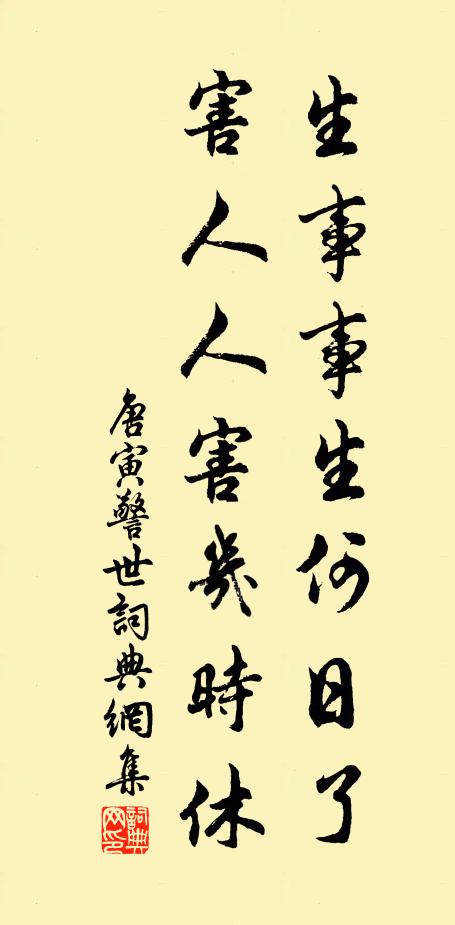 生事事生何日了
害人人害幾時休
唐寅警世詞典網集
詞典網印